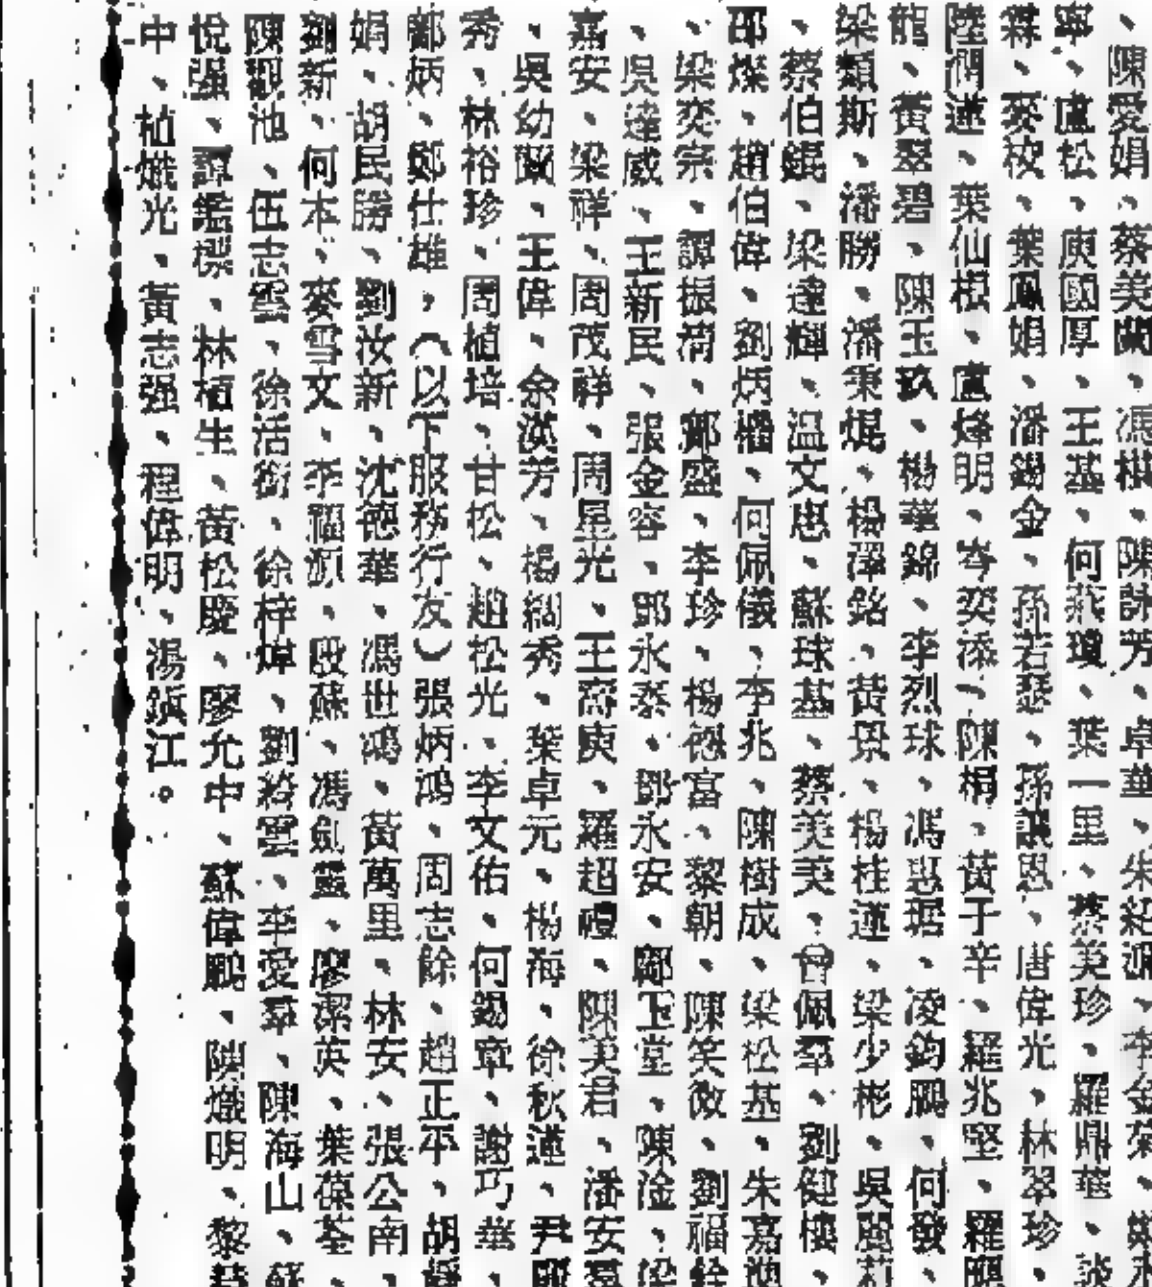 、陳愛娟、蔡美蘭、馮棋、陳詠芳、卓華、朱紹、李金菊、
寧、盧松、庾國厚、王基、何燕瓊、葉一里、蔡美珍、羅鼎華、談
霖、麥枚、葉鳳娟、潘錫金、孫若瑟、孫讓恩、唐偉光、林翠珍、
陸潤蓮、葉仙根、盧烽明、岑奕添、陳桐、黃于辛、羅兆堅、羅
龍、黃翠碧、陳玉玖、楊華錦、李烈球、馮惠琚、凌鈞鵬、何發、
梁類斯、潘勝、潘秉焜、楊澤銘、黃景、楊桂蓮、梁少彬、吳麗莉
、蔡伯鋸、梁達輝、温文忠、蘇球基、蔡美英、曾佩羣、劉健樓、
邵燦、趙伯偉、劉炳橎、何佩儀、李兆、陳樹成、梁松基、朱嘉
、梁奕宗、譚振清、鄺盛、李珍、楊德富、黎朝、陳笑微、劉福銓
、吳達威、王新民、張金容、鄧永泰、鄧永安、鄺玉堂、陳淦、梁
嘉安、梁祥、周茂祥、周星光、王喬庾、羅超禮、陳美君、潘安
、吳幼蘭、王偉、余漢芳、楊潤秀、葉卓元、楊海、徐秋蓮、尹
秀、林裕珍、周植培、甘松、趙松光、李文佑、何錫章、謝巧華、
鄺炳、鄭仕雄，（以下服務行友）張炳鴻、周志餘、趙正平、胡
娟、胡民勝、劉汝新、沈德華、馮世鴻、黃萬里、林安、張公南、
劉新、何本、麥雪文、李福源、殷蘇、馮劍靈、廖潔英、葉葆荃、
陳觀池、伍志雲、徐活銜、徐梓煒、劉綺雲、李愛羣、陳海山、蘇
悅强、譚鑑標、林植生、黃松慶、廖允中、蘇偉鵬、陳熾明、黎
中、植熾光、黃志强、程偉明、湯鎮江。